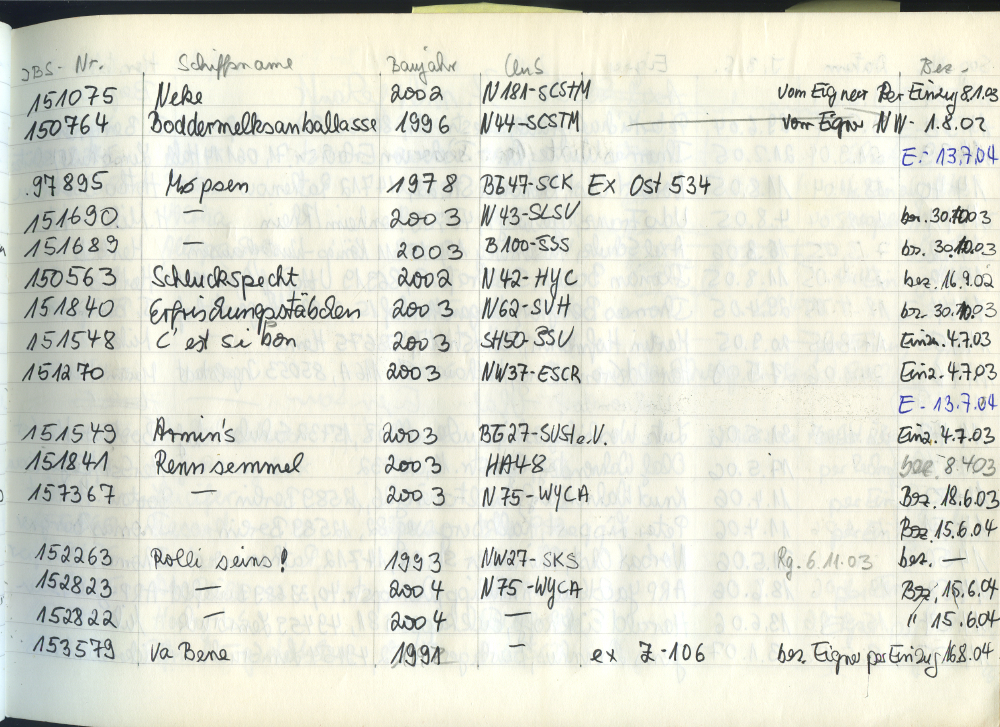 DBS-Nr. Schiffsname Baujahr UnS Bez.
151075 Neke 2002 N181-SCSTM vom Eigner Per Einzug 8.1.03
150764 Boddermelksanballasse 1996 N44-SCSTM vom Eigner NW- 1.8.02
E. 13.7.04
97895 Mópsen 1978 BE47-SCK Ex Ost 534
151690 — 2003 N43-SLSV bez. 30.10.03
151689 — 2003 B100-SSS bz. 30.10.03
150563 Schluckspecht 2002 N42-HYC bez. 16.9.02
151840 Erfrischungsstäbchen 2003 N62-SVH bz. 30.10.03
151548 C'est si bon 2003 SH50-SSV Einz. 4.7.03
151270 2003 NW37-ESCR Einz. 4.7.03
E - 13.7.04
151549 Armin's 2003 BE27-SVSt e.V. Einz. 4.7.03
151841 Rennsemmel 2003 HA48 bez. 8.4.03
157367 — 2003 N75-WYCA Bez. 18.6.03
Bez. 15.6.04
152263 Rolli seins! 1993 NW27-SKS Rg. 6.11.03 bez. —
152823 — 2004 N75-WYCA Bez. 15.6.04
152822 — 2004 — " 15.6.04
153579 Va Bene 1991 — ex Z-106 bez. Eigner per Einzug 16.8.04